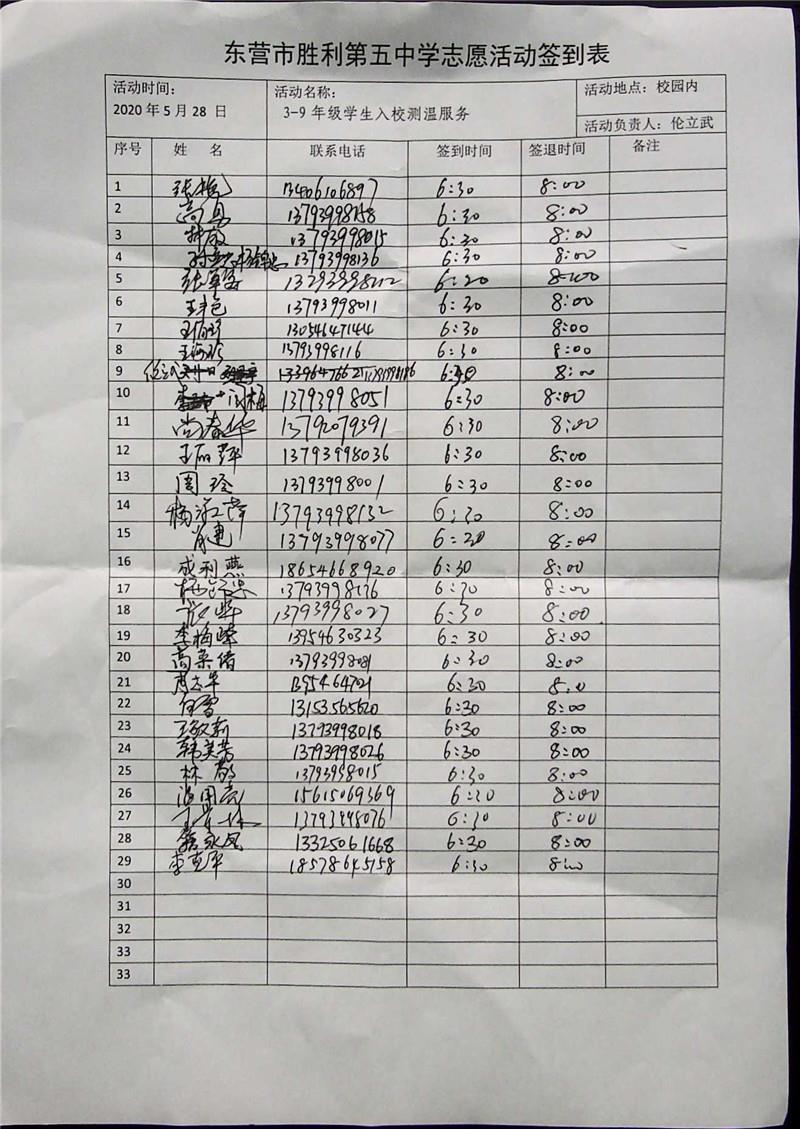 东营市胜利第五中学志愿活动签到表
活动时间： 活动名称： 活动地点：校园内
2020年5月28 日 3-9年级学生入校测温服务
活动负责人：伦立武
序号 姓 名 联系电话 签到时间 签退时间 备注
1 13406106897 6:30 8:00
2 13793998158 6:30 8:00
3 林敬 13793998015 6:30 8:00
4 13793998136 6:30 8:00
5 6:20 8:00
6 王艳 13793998011 6:30 8:00
7 13054647144 6:30 8:00
8 王海珍 13793998116 6:30 8:00
9 8:00
10 13793998051 6:30 8:00
11 尚春华 13792079391 6:30 8:00
12 王丽萍 13793998036 6:30 8:00
13 周玲 13793998001 6:30 8:00
14 杨淑萍 13793998132 6:30 8:00
15 肖建 13793998077 6:20 8:00
16 成利燕 18654668920 6:30 8:00
17 13793998136 6:30 8:00
18 13793998027 6:30 8:00
19 李梅峰 13954630323 6:30 8:00
20 高荣倩 6:30 8:00
21 周志华 6:30 8:00
22 白雪 13153565620 6:30 8:00
23 王敏莉 13793998018 6:30 8:00
24 韩美芳 13793998026 6:30 8:00
25 林敬 13793998015 6:30 8:00
26 15615069369 6:30 8:00
27 13793998076 6:30 8:00
28 綦永凤 13325061668 6:30 8:00
29 李克军 18578645158 6:30 8:00
30
31
32
33
33